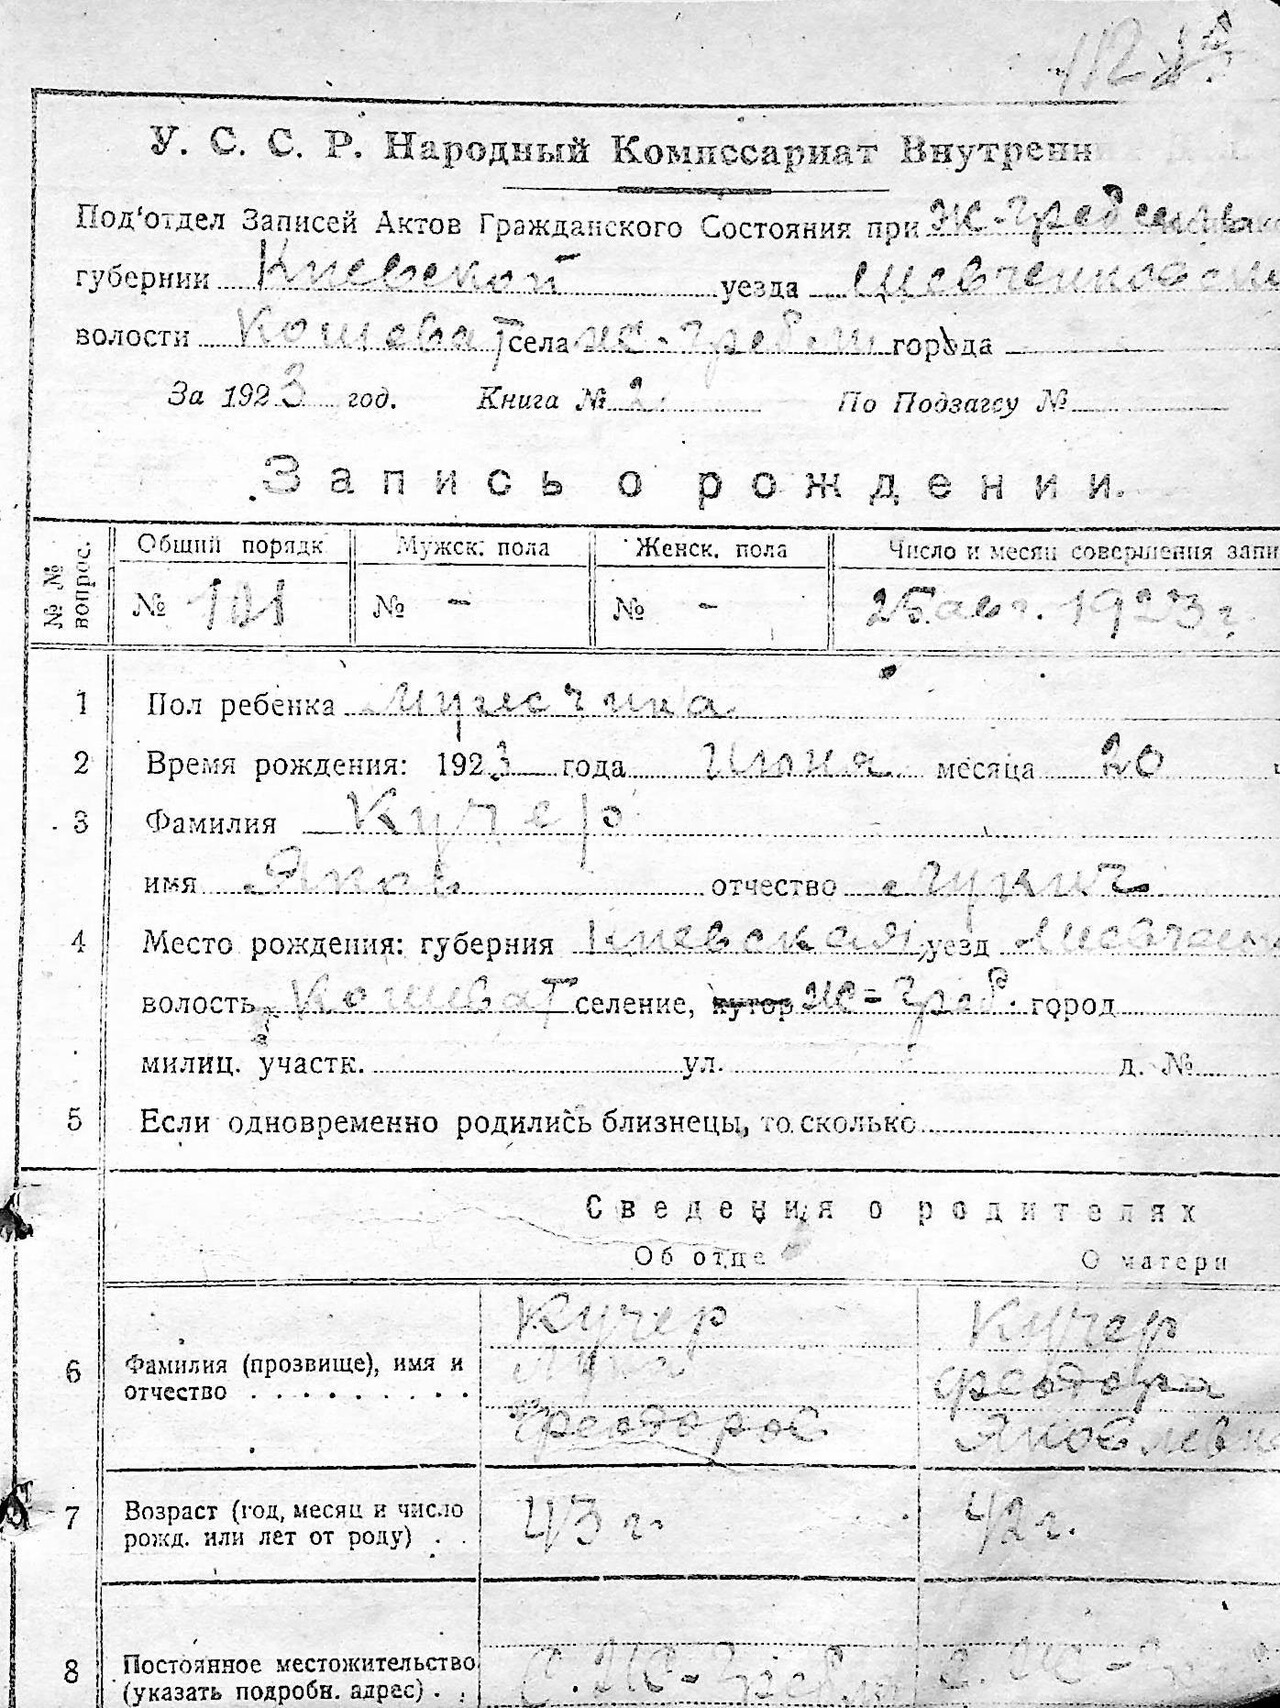 112
У. С. С. Р. Народный Комиссариат Внутренн
Под'отдел Записей Актов Гражданского Состояния при Ж-Гребен
губернии Киевской уезда Шевченковск
волости Кошеват села Ж-Гребли города
За 1923 год. Книга № 2 По Подзагсу №
Запись о рождении.
№ № вопрос. Общий порядк Мужск. пола Женск. пола Число и месяц совершения запи
№ 101 № - № - 25 авг. 1923 г.
1 Пол ребенка мужсчина
2 Время рождения: 1923 года Июня месяца 20 ч
3 Фамилия Кучер
имя Яков отчество Лукич
4 Место рождения: губерния Киевская, уезд Шевчен
волость Кошеват селение, хутор Ж=Греб. город
милиц. участк. ул. д. №
5 Если одновременно родились близнецы, то сколько
Сведения о родителях
Об отце О матери
Кучер Кучер
6 Фамилия (прозвище), имя и Лука Феодора
отчество Феодоров Яковлевн
7 Возраст (год, месяц и число рожд. или лет от роду) 43 г. 42 г.
8 Постоянное местожительство С. Ж-Гребли с. Ж-Гре
(указать подробн. адрес)